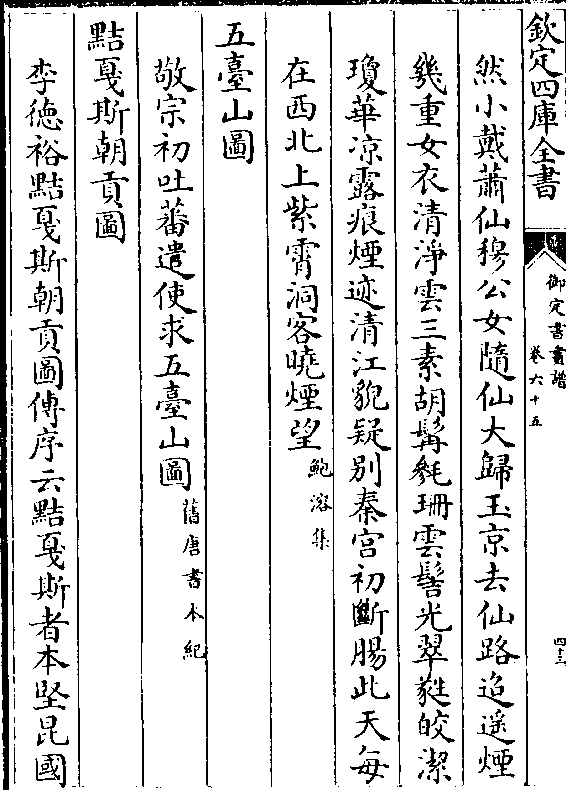 欽定四庫全書
御定書畫譜
卷六十五
四十三
然小戴蕭仙穆公女隨仙大歸玉京去仙路迢遥煙
幾重女衣清淨雲三素胡髯毵珊雲髻光翠蕤皎潔
瓊華涼露痕煙迹清江貌疑別秦宫初斷腸此天每
在西北上紫霄洞客曉煙望鮑溶集
五臺山圖
敬宗初吐蕃遣使求五臺山圖舊唐書本紀
黠戛斯朝貢圖
李徳裕黠戛斯朝貢圖傳序云黠戛斯者本堅昆國